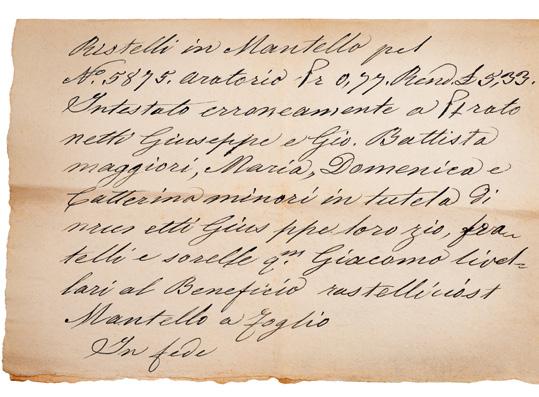 Ristelli in Mantello pel
No. 5875. aratorio Pr 0,77. Rend. £ 5,33.
Intestato erroneamente a
netti Giuseppe e Gio. Battista
maggiori, Maria, Domenica e
Catterina minori in tutela di
etti Gius ppe loro zio, fra
telli e sorelle qm Giacomo livel-
lari al Beneficio
Mantello a Foglio
In fede